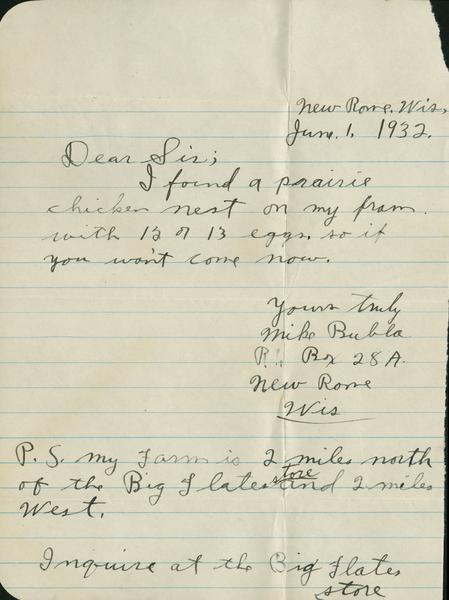 New Rome. Wis.
June. 1. 1932.
Dear Sir;
I found a prairie
chicken nest on my fram.
with 12 or 13 eggs. so if
you wan't come now.
Yours truly
Mike Bubla
R.1. Box 28 A.
New Rome
Wis
P. S. my Farm is 2 miles north
of the Big Flates store and 2 miles
West.
Inquire at the Big Flates
store